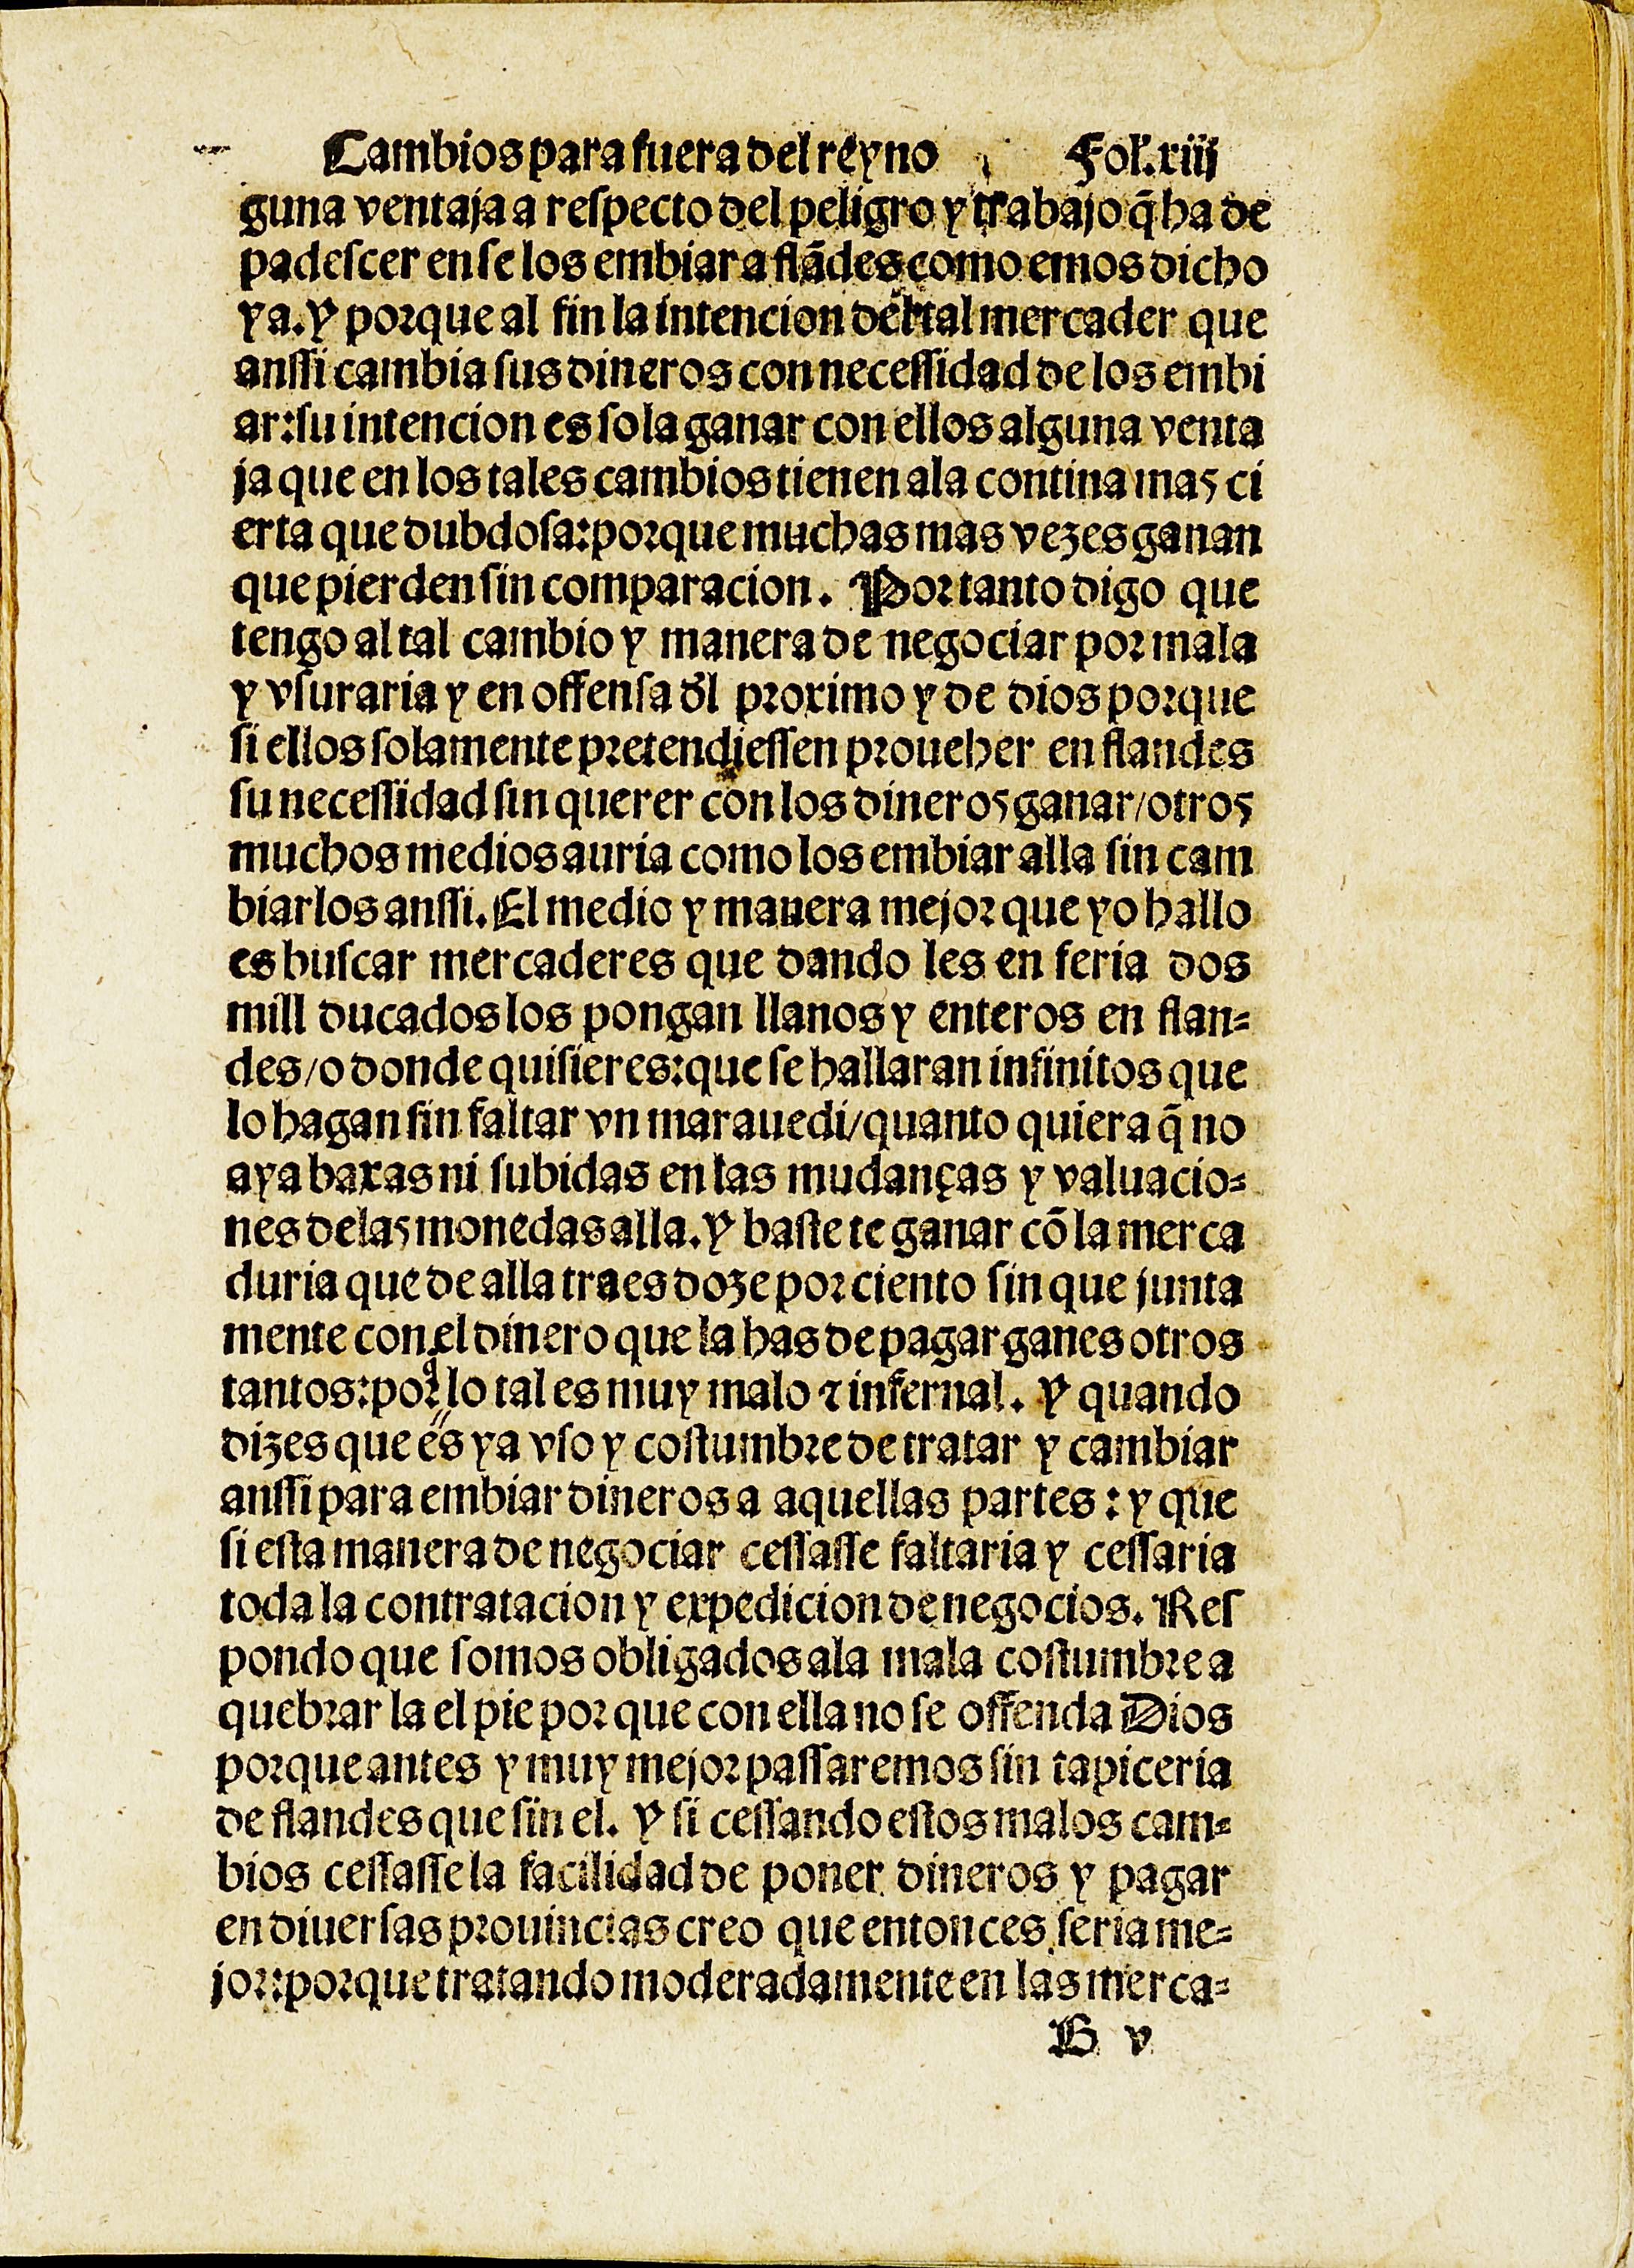 Cambios para fuera del reyno Fol. xiij
guna ventaja a reſpecto del peligro y trabajo q̃ ha de
padeſcer en ſe los embiar a flãdes como emos dicho
ya. Y porque al fin la intencion del tal mercader que
anſſi cambia ſus dineros con neceſſidad de los embi
ar: ſu intencion es ſola ganar con ellos alguna venta
ja que en los tales cambios tienen ala contina mas ci
erta que dubdoſa: porque muchas mas vezes ganan
que pierden ſin comparacion. Por tanto digo que
tengo al tal cambio y manera de negociar por mala
y vſuraria y en offenſa d̃l proximo y de dios porque
ſi ellos ſolamente pretendieſſen proueher en flandes
ſu neceſſidad ſin querer con los dineros ganar/otros
muchos medios auria como los embiar alla ſin cam
biarlos anſſi. El medio y manera mejor que yo hallo
es buſcar mercaderes que dando les en feria dos
mill ducados los pongan llanos y enteros en flan⸗
des/o donde quiſieres: que ſe hallaran infinitos que
lo hagan ſin faltar vn marauedi/quanto quiera q̃ no
aya baxas ni ſubidas en las mudanças y valuacio⸗
nes de las monedas alla. Y baſte te ganar cõ la merca
duria que de alla traes doze por ciento ſin que junta
mente con el dinero que la has de pagar ganes otros
tantos: porq̃ lo tal es muy malo ⁊ infernal. Y quando
dizes que es ya vſo y coſtumbre de tratar y cambiar
anſſi para embiar dineros a aquellas partes: y que
ſi eſta manera de negociar ceſſaſſe faltaria y ceſſaria
toda la contratacion y expedicion de negocios. Reſ
pondo que ſomos obligados ala mala coſtumbre a
quebrar la el pie por que con ella no ſe offenda Dios
porque antes y muy mejor paſſaremos ſin tapiceria
de flandes que ſin el. Y ſi ceſſando eſtos malos cam⸗
bios ceſſaſſe la facilidad de poner dineros y pagar
en diuerſas prouincias creo que entonces ſeria me⸗
jor: porque tratando moderadamente en las merca⸗
B v